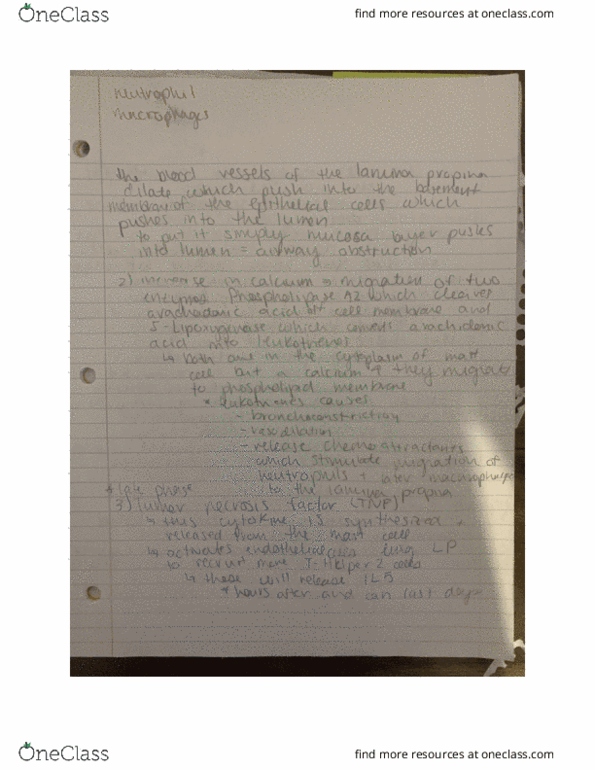 OneClass
find more resources at oneclass.com
neutrophil
macrophages
the blood vessels of the lamina propina
dilate which push into the basement
membrane of the epithelial cells which
pushes into the lumen
to put it simply mucosa layer puses
into lumen = airway obstruction
2) increase in calcium → migration of two
enzymes Phospholipase A2 which cleaves
arachadonic acid off cell membrane and
5-Lipoxygenase which converts arachidonic
acid into leukotrienes
↳ both are in the cytoplasm of mast
cell but a calcium ↑ they migrate
to phospholipid membrane
* leukotrienes causes
- bronchoconstriction
- vasodilation
- release chemoattractants
which stimulate migration of
neutrophils + later macrophages
to the lamina propria
* late phase
3) tumor necrosis factor (TNF)
↳ this cytokine is synthesized +
released from the mast cell
↳ activates endothelial cells lung LP
to recruit more T-Helper 2 cells
↳ these will release IL5
* hours after and can last days
OneClass
find more resources at oneclass.com